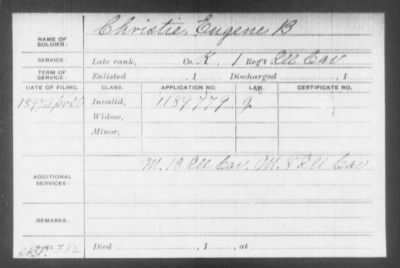 NAME OF SOLDIER: Christie, Eugene B
SERVICE: Late rank, Co. K, 1 Reg't Ill Cav
TERM OF SERVICE: Enlisted , 1 Discharged , 1
DATE OF FILING. CLASS. APPLICATION NO. LAW. CERTIFICATE NO.
1897 Apr 20 Invalid, 1189779 J
Widow,
Minor,
ADDITIONAL SERVICES: M. 13 Ill Cav. M. 8 Ill Cav
REMARKS:
Died , 1 , at